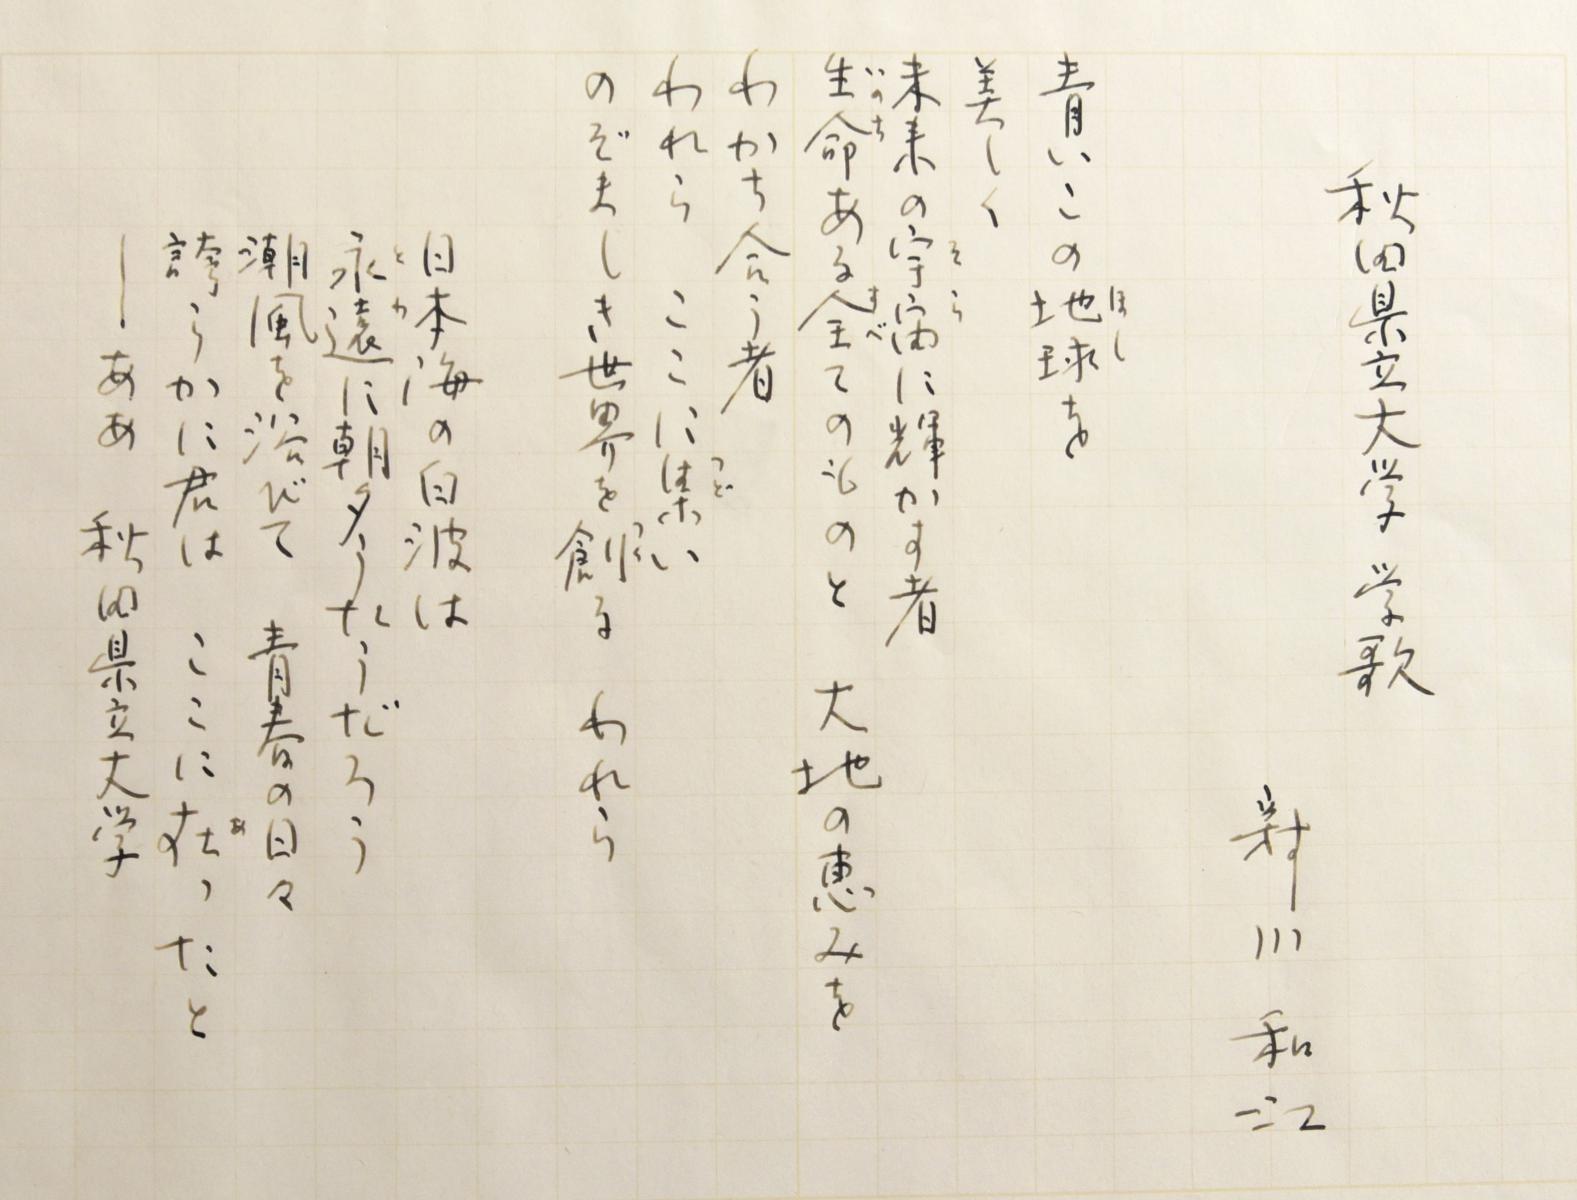 秋田県立大学 学歌
新川 和江
青いこの地球を
ほし
美しく
未来の宇宙に輝かす者
そら
生命ある全てのものと 大地の恵みを
いのち すべ
わかち合う者
われら ここに集い
つど
のぞましき世界を創る われら
つく
日本海の白波は
永遠に朝夕うたうだろう
とわ
潮風を浴びて 青春の日々
誇らかに君は ここに在ったと
あ
―ああ 秋田県立大学